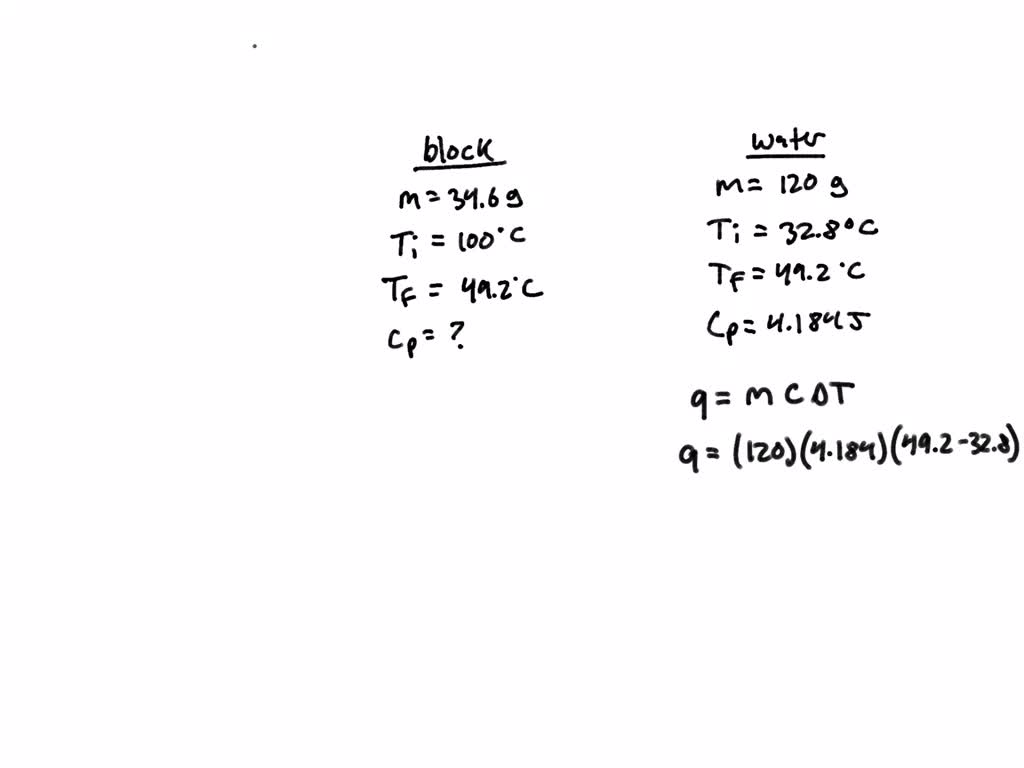 block
m = 34.6 g
Ti = 100°C
TF = 49.2°C
Cp = ?
water
m = 120 g
Ti = 32.8°C
TF = 49.2°C
Cp = 4.184 J
q = m C ΔT
q = (120)(4.184)(49.2-32.8)